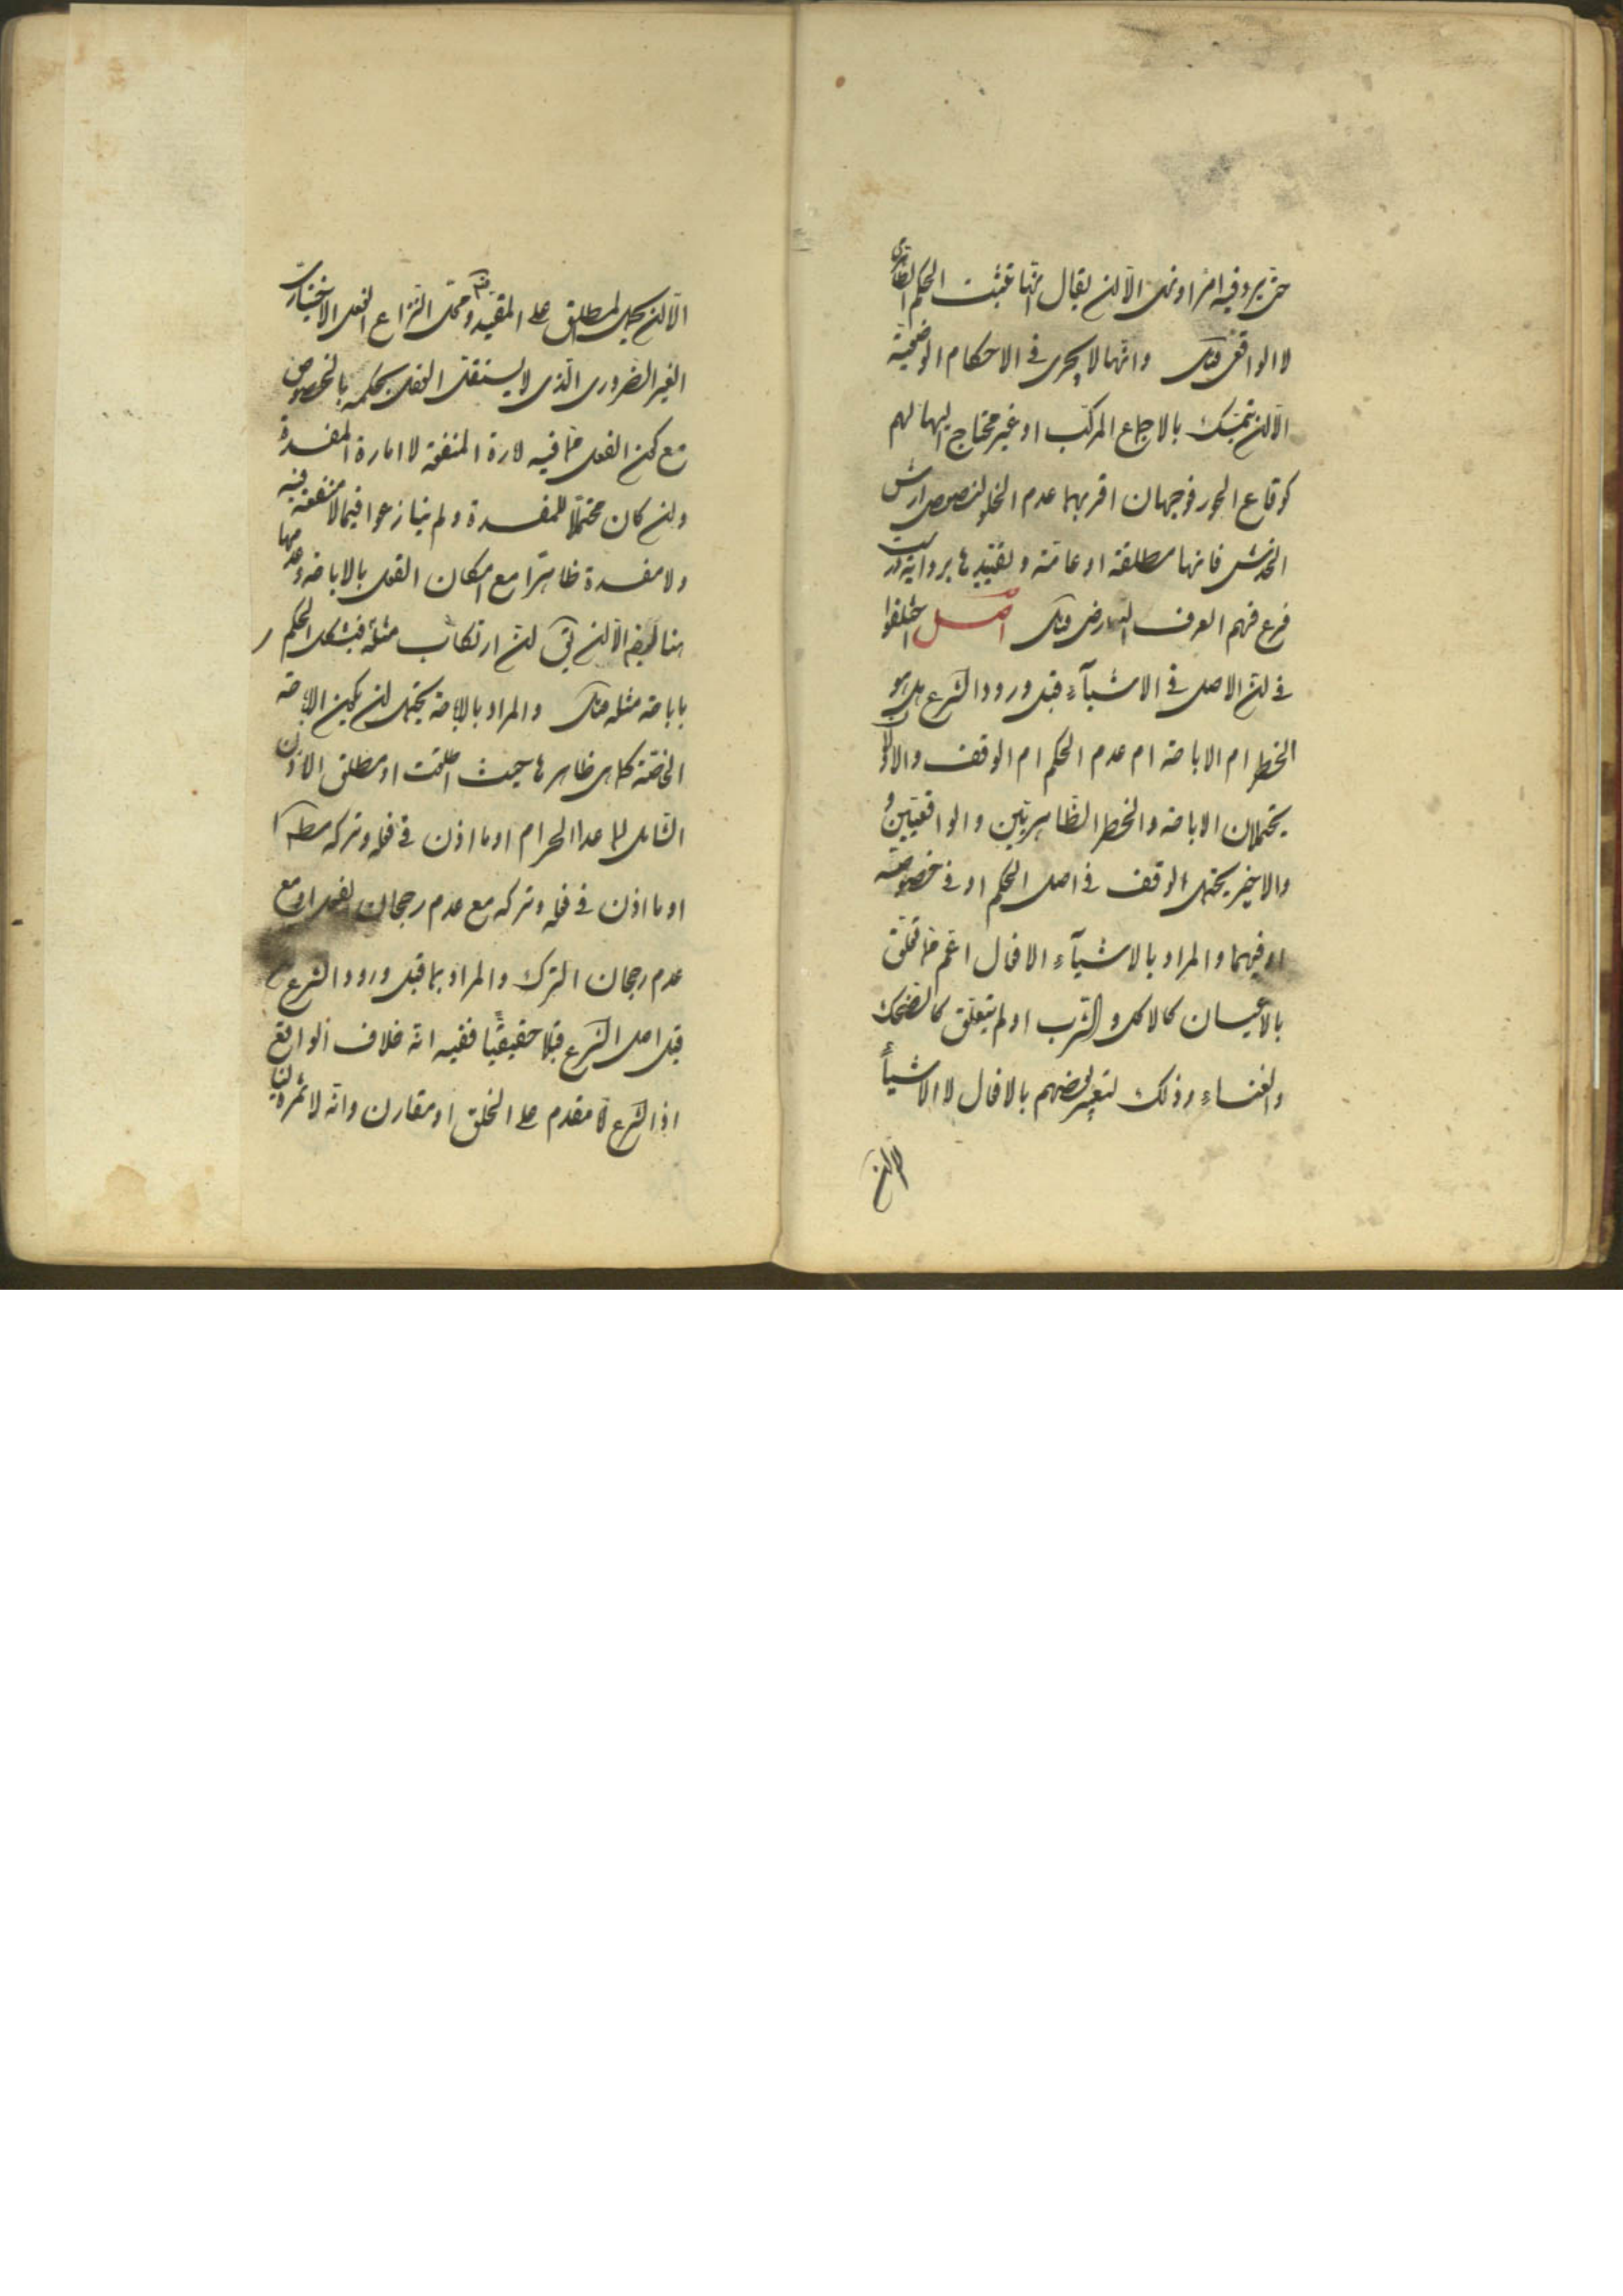 حتى يرد فيه امر او نهى الا ان يقال انها تثبت الحكم الظاهرى
لا الواقعى فتأمل وانها لا يجرى فى الاحكام الوضعية
الا ان يتمسك بالاجماع المركب او غير محتاج اليها لهم
فوجهان اقربهما عدم
الخدش فانها مطلقة او عامة وتقييدها برواية
فرع فهم العرف التعارض فتأمل اصل اختلفوا
فى ان الاصل فى الاشيآء قبل ورود الشرع هل هو
الحظر ام الاباحة ام عدم الحكم ام الوقف والاولان
يحتملان الاباحة والحظر الظاهريتين والواقعيتين
والاخير يحتمل الوقف فى اصل الحكم او فى خصوصيته
او فيهما والمراد بالاشيآء الافعال اعم مما تعلق
بالاعيان كالاكل والشرب او لم يتعلق كالضحك
والغناء وذلك لتعبير بعضهم بالافعال لا الاشيآء
الا ان
الا ان يحمل المطلق على المقيد ومحل النزاع الفعل الاختيارى
الغير الضرورى الذى لا يستقل العقل بحكمه بالخصوص
مع كون الفعل مما فيه امارة المنفعة لا امارة المفسدة
وان كان محتملا للمفسدة ولم ينازعوا فيما لا منفعة فيه
ولا مفسدة ظاهرا مع امكان القول بالاباحة وعدمها
هنا ايضا الا ان يقال ان ارتكاب مثله فيشكل الحكم
باباحة مثله فتأمل والمراد بالاباحة يحتمل ان يكون الاباحة
الخاصة كما هى ظاهرها حيث اطلقت او مطلق الاذن
الشامل لما عدا الحرام او ما اذن فى فعله وتركه مطلقا
او ما اذن فى فعله وتركه مع عدم رجحان الفعل او مع
عدم رجحان الترك والمراد بما قبل ورود الشرع
قبل اصل الشرع قبلا حقيقيا ففيه انه خلاف الواقع
اذ الشرع مقدم على الخلق او مقارن وانه لا ثمرة لنا